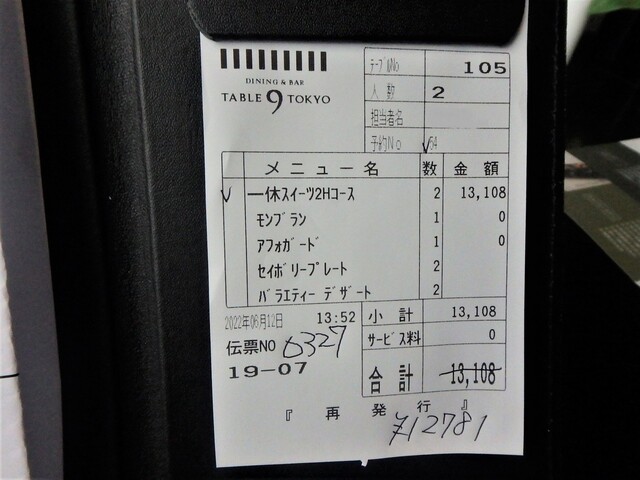 DINING & BAR
TABLE 9 TOKYO
ﾃｰﾌﾞﾙNo 105
人数 2
担当者名
予約No 64
メニュー名 数 金額
一休スイーツ2Hコース 2 13,108
モンブラン 1 0
アフォガード 1 0
セイボリープレート 2
バラエティー デザート 2
2022年06月12日 13:52
小計 13,108
サービス料 0
伝票NO 0327
19-07
合計 13,108
『再発行』
¥12781